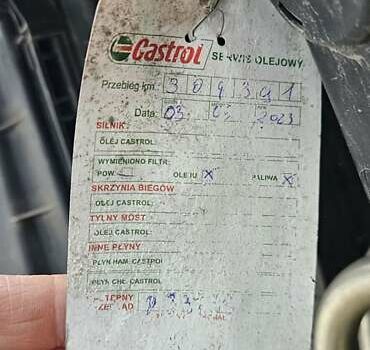 Castrol SERWIS OLEJOWY
Przebieg km: 304391
Data: 03. 2023
SILNIK
OLEJ CASTROL:
WYMIENIONO FILTR:
POW. OLEJU X PALIWA X
SKRZYNIA BIEGÓW
OLEJ CASTROL:
TYLNY MOST
OLEJ CASTROL:
INNE PŁYNY
PŁYN HAM. CASTROL
PŁYN CHŁ. CASTROL